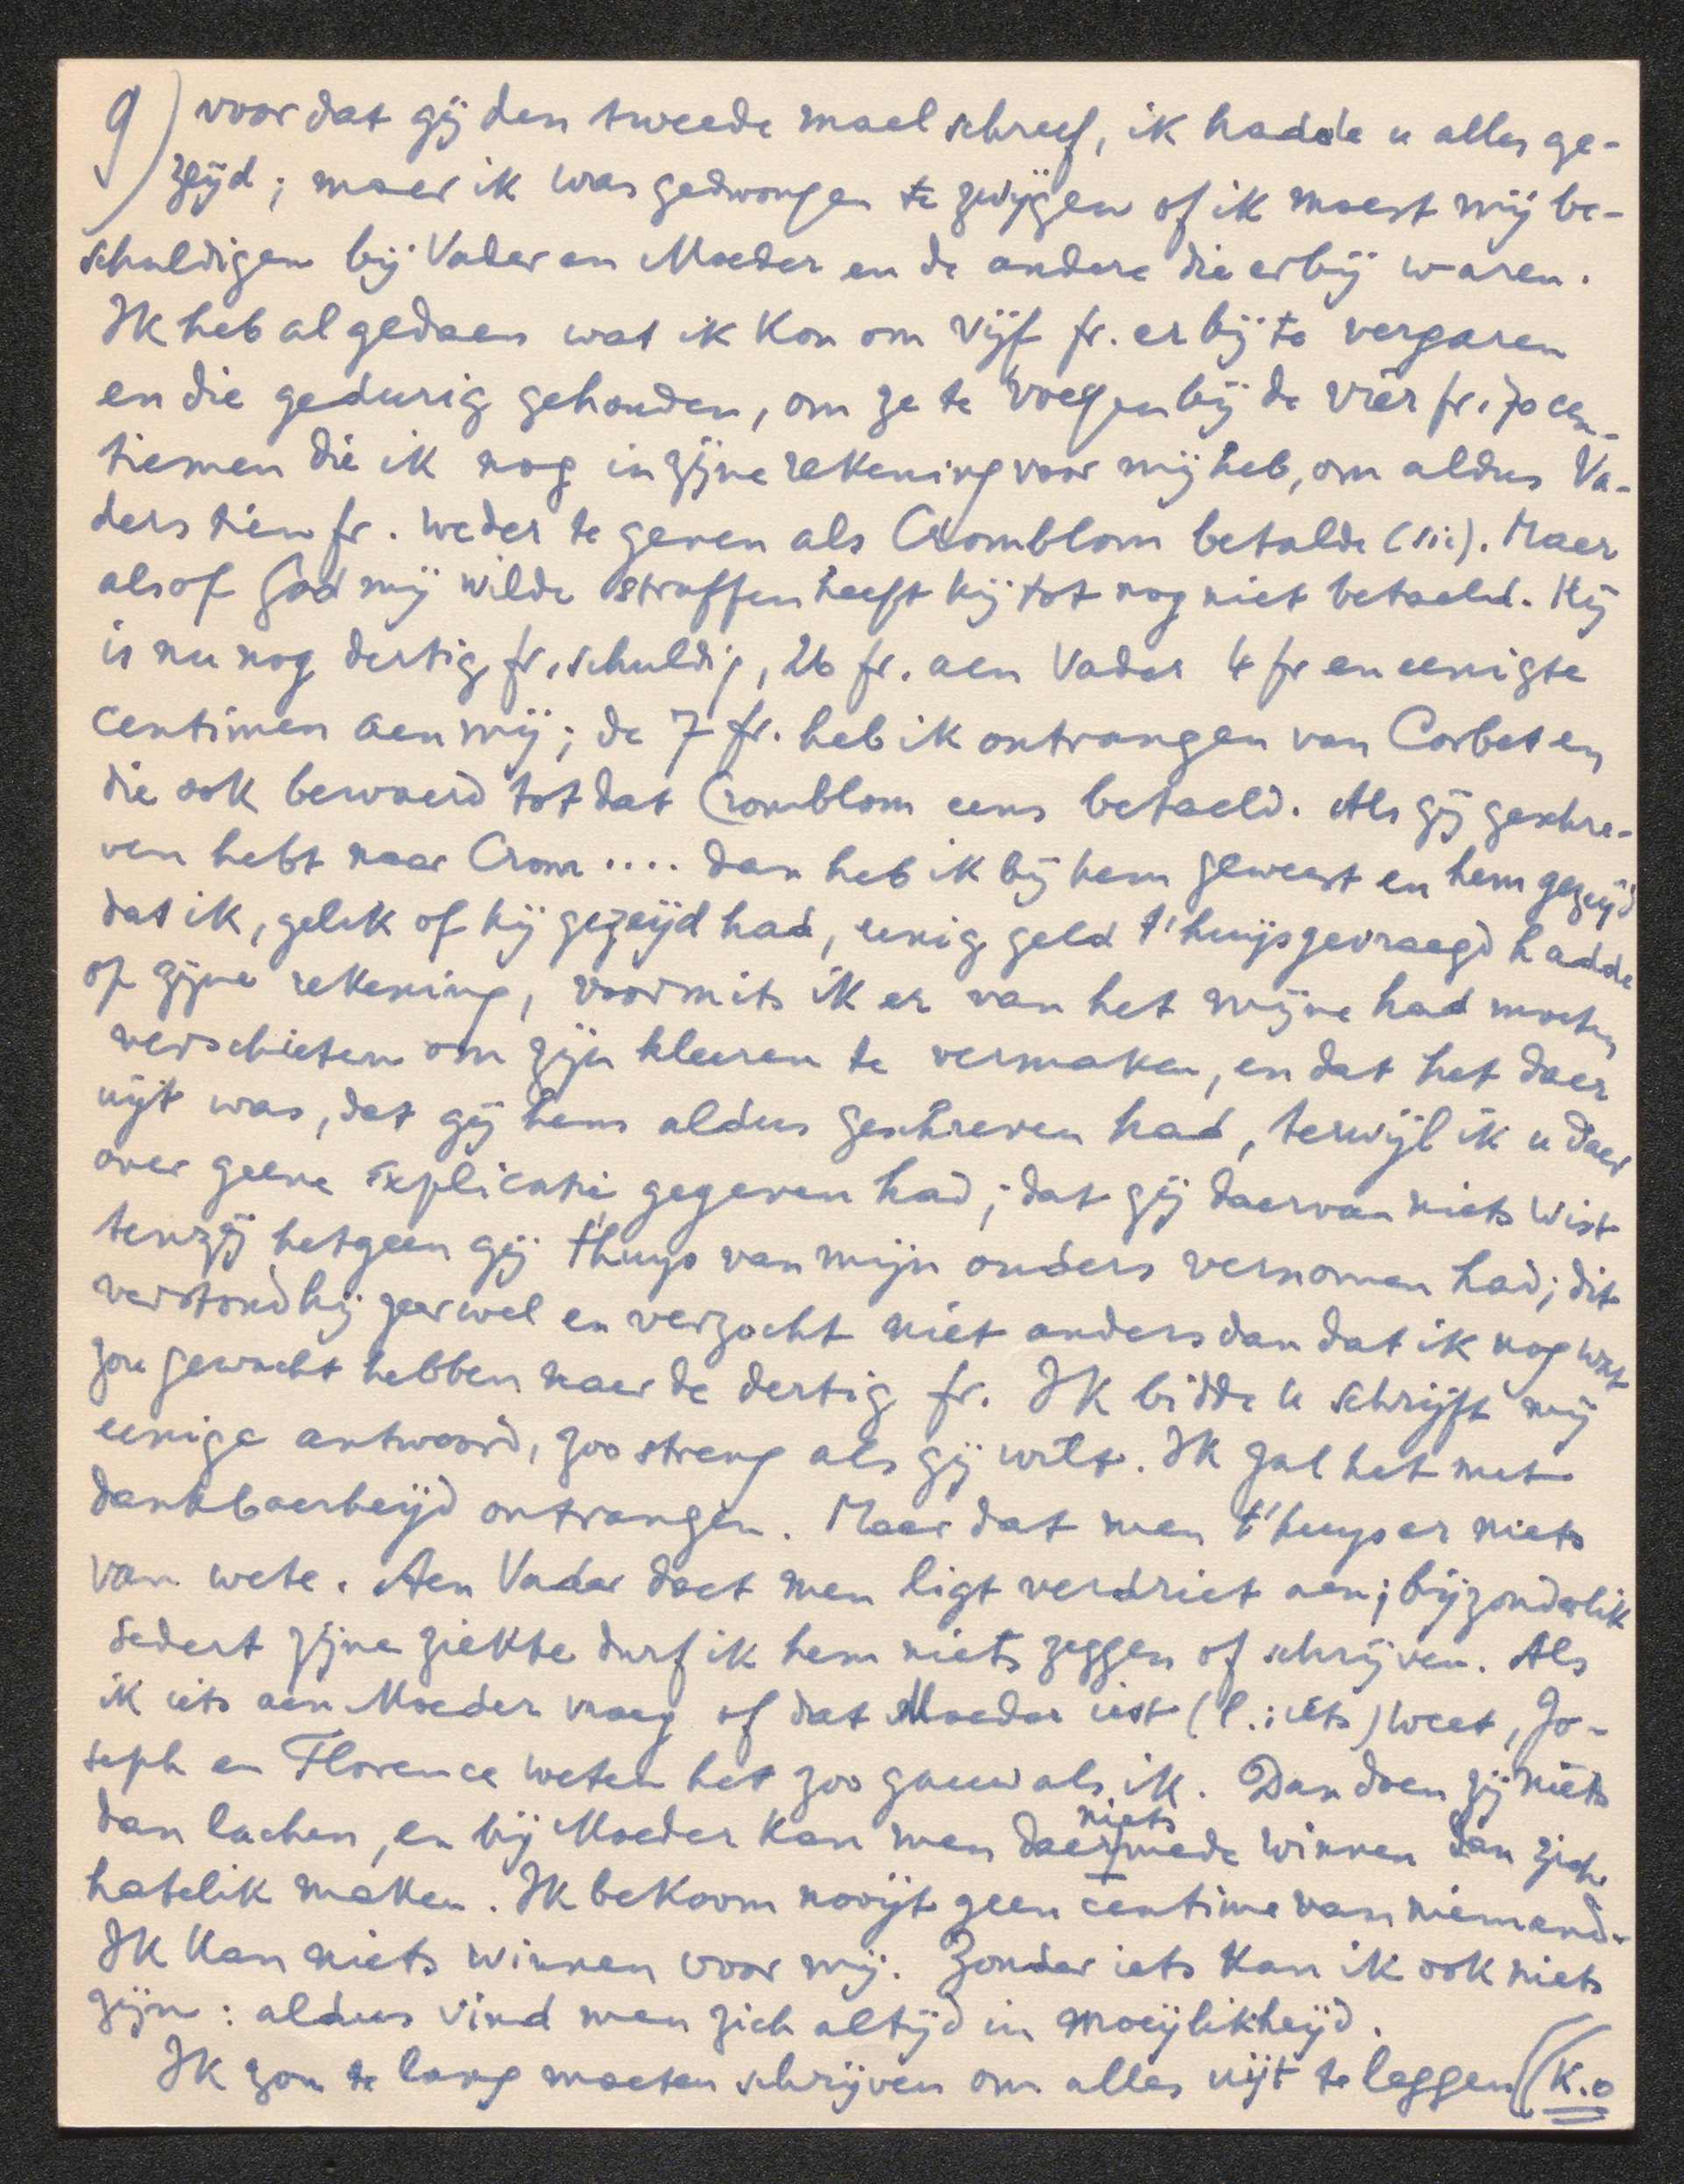 9) voor dat gij den tweede mael schreef, ik hadde u alles ge-
zeijd; maer ik was gedwongen te zwijgen of ik moest mij be-
schuldigen bij Vader en Moeder en de andere die erbij waren.
Ik heb al gedaen wat ik kon om vijf fr. er bij te vergaren
en die gedurig gehouden, om ze te voegen bij de vier fr. 70 cen-
tiemen die ik nog in zijne rekening voor mij heb, om aldus Va-
ders tien fr. weder te geven als Cromblom betalde (sic). Maer
alsof God mij wilde straffen heeft hij tot nog niet betaeld. Hij
is nu nog dertig fr. schuldig, 26 fr. aen Vader 4 fr en eenigte
centimen aen mij; de 7 fr. heb ik ontvangen van Corbet en
die ook bewaerd tot dat Cromblom eens betaeld. Als gij geschre-
ven hebt naar Crom .... dan heb ik bij hem geweest en hem gezeijd
dat ik, gelik of hij gezeijd had, eenig geld t'huijs gevraegd hadde
op zijne rekening, voormits ik er van het mijne had moeten
verschieten om zijn kleeren te vermaken, en dat het daer
uijt was, dat gij hem aldus geschreven had, terwijl ik u daer
over geene explicatie gegeven had; dat gij daervan niets wist
tenzij hetgeen gij t'huys van mijn ouders vernomen had; dit
verstond hij zeer wel en verzocht niet anders dan dat ik nog wat
zou gewacht hebben naer de dertig fr. Ik bidde u schrijft mij
eenige antwoord, zoo streng als gij wilt. Ik zal het met
dankbaerheijd ontvangen. Maer dat men t'huys er niets
van wete. Aen Vader doet men ligt verdriet aen; bijzonderlik
sedert zijne ziekte durf ik hem niets zeggen of schrijven. Als
ik iets aen Moeder vraeg of dat Moeder iest (l.: iets) weet, Jo-
seph en Florence weten het zoo gauw als ik. Dan doen zij niets
dan lachen, en bij Moeder kan men daermede niets winnen dan zich
hatelik maken. Ik bekoom nooijt geen centime van niemand.
Ik kan niets winnen voor mij. Zonder iets kan ik ook niets
zijn: aldus vind men zich altijd in moeijlikheijd.
Ik zou te lang moeten schrijven om alles uijt te leggen ((K.o